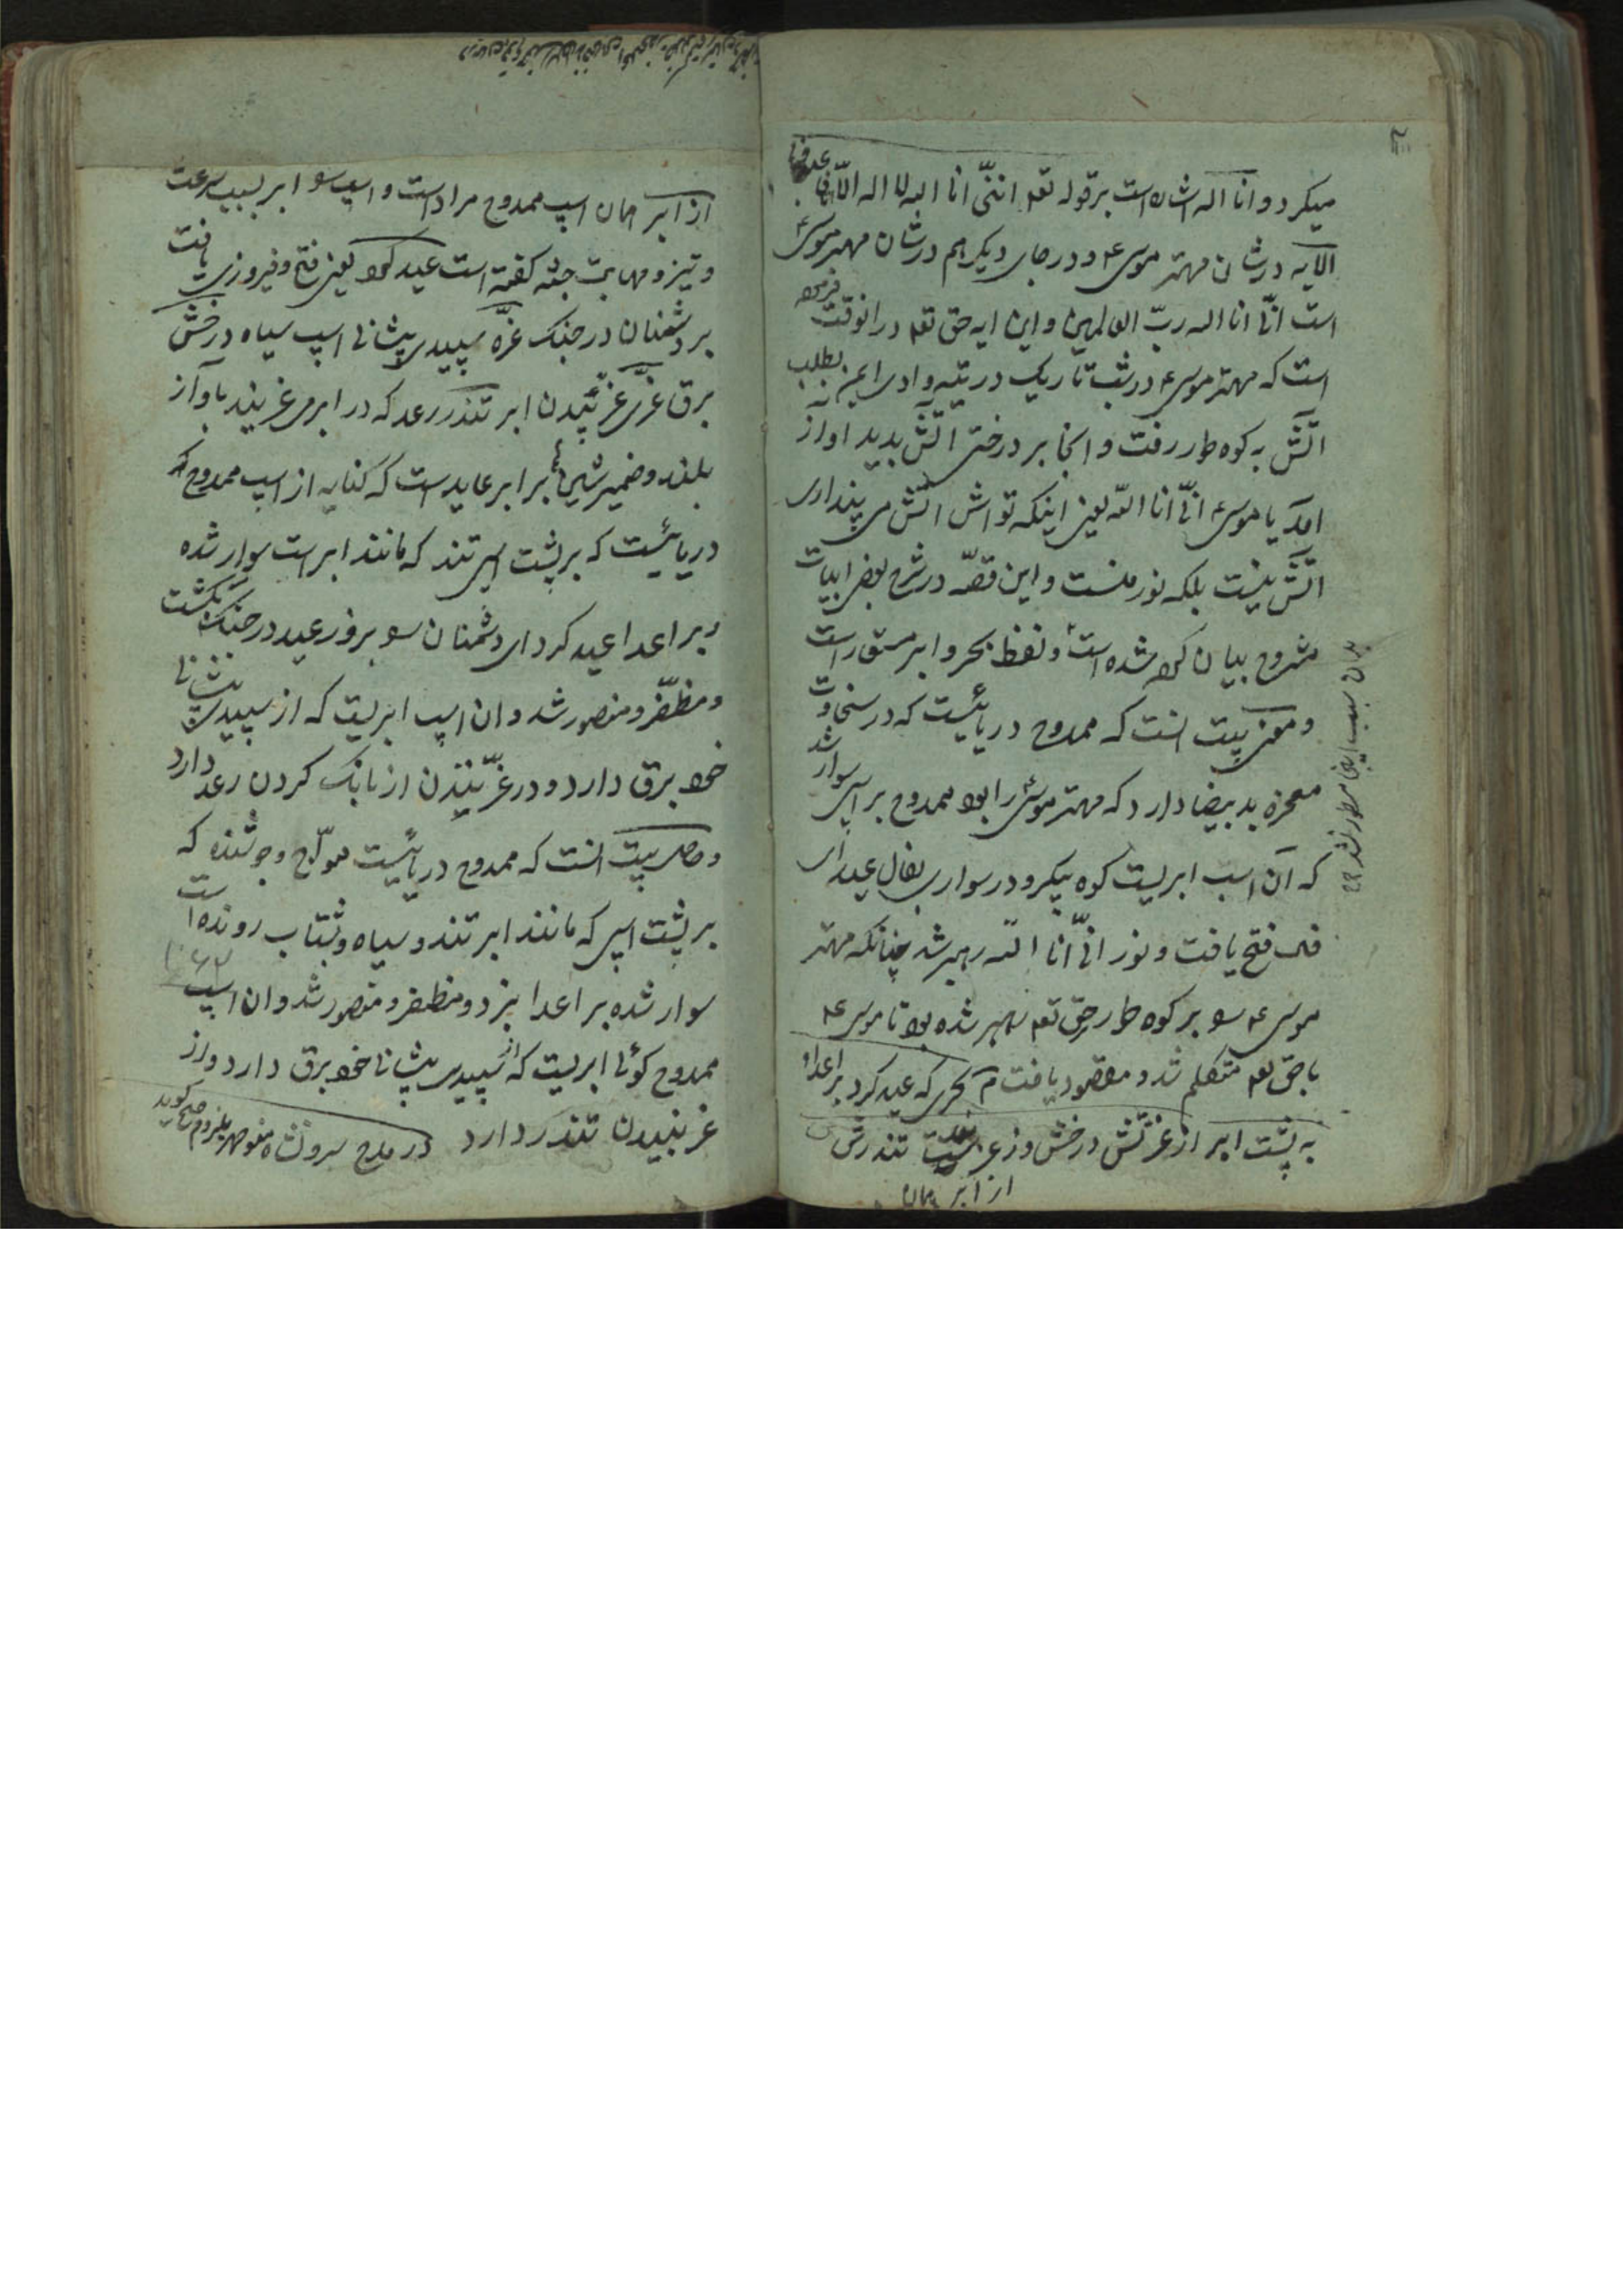 میکرد و انا الله اشارت است بر قوله تعه اننی انا الله لا اله الا انا فاعبدنی
الایه در شان مهتر موسی ع و در جای دیکر هم در شان مهتر موسی ع
است انی انا الله ربّ العالمین و این ایه حق تعه در انوقت فرموده
است که مهتر موسی ع در شب تاریک در تیه وادی ایمن بطلب
اتش به کوه طور رفت و انجا بر درختی اتش بدید اواز
امد یا موسی ع انّی انا الله یعنی اینکه تو اش اتش می پنداری
اتش نیست بلکه نور منست و این قصّه در شرح بعضی ابیات
مشروح بیان کرده شده است و لفظ بحر و ابر مستعار است
و معنی بیت انست که ممدوح دریائیست که در سخاوت
معجزه ید بیضا دارد که مهتر موسی ع را بود ممدوح بر اسپی سوار شد
که آن اسپ ابریست کوه پیکر و در سواری بفال عید ای
فال فتح یافت و نور انّی انا الله رهبر شد چنانکه مهتر
موسی ع سو بر کوه طور حق تعه رهبر شده بود تا موسی ع
با حق تعه متکلم شد و مقصود یافت م بحری که عید کرد بر اعدا
به پشت ابر از غرتش درخش وز غریدنش تندرش
از ابر همان
بدان سبب اینجا مسطور نشد
از ابر همان اسپ ممدوح مراد است و اسپ سو ابر بسبب سرعت
و تیز و مهابت جثه کفته است عید کرد یعنی فتح و فیروزی یافت
بر دشمنان در جنک غرّه سپیدی پیشانی اسپ سیاه درخش
برق غرّش غرّیدن ابر تندر رعد که در ابر می غریند باواز
بلند و ضمیر شین بر ابر عاید است که کنایه از اسپ ممدوح
دریائیست که بر پشت اسپ تند که مانند ابر است سوار شده
و بر اعدا عید کرد ای دشمنان سو بروز عید در جنک بکشت
و مظفّر و منصور شد و ان اسپ ابریست که از سپیدی پیشانی
خود برق دارد و در غرّیدن از بانک کردن رعد دارد
و حاصل بیت انست که ممدوح دریائیست موّاج و جوشنده که
بر پشت اسپی که مانند ابر تند و سیاه و بشتاب رونده است
سوار شده بر اعدا بزد و مظفر و منصور شد و ان اسپ
ممدوح کوئی ابریست که از سپیدی پیشانی خود برق دارد و از
غریدن تندر دارد در مدح سروانشاه منوچهر